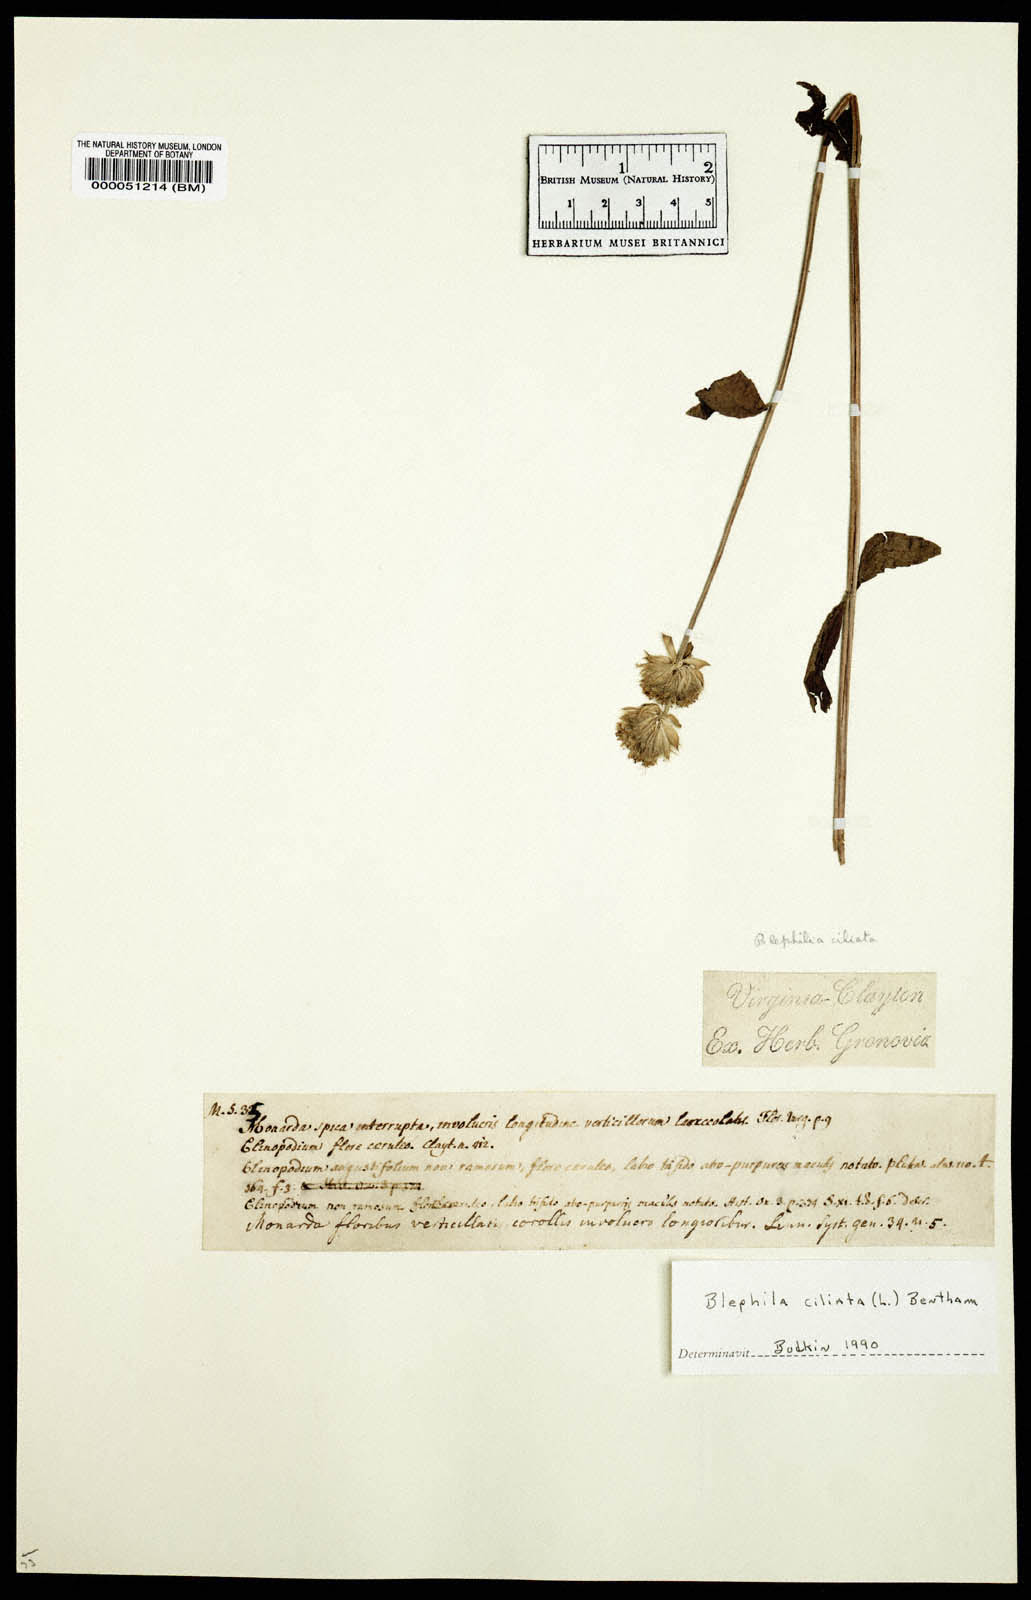 THE NATURAL HISTORY MUSEUM, LONDON
DEPARTMENT OF BOTANY
000051214 (BM)
1 2
BRITISH MUSEUM (NATURAL HISTORY)
1 2 3 4 5
HERBARIUM MUSEI BRITANNICI
Blephilia ciliata
Virginia-Clayton
Ex. Herb. Gronovii
Monarda spica interrupta, involucris longitudine verticillorum Flor. Virg. p. 9
Clinopodium flore cœruleo. Clayt. n.
Clinopodium angustifolium non ramosum, flore cœruleo, labio trifido atro-purpureis maculis notato. Pluk. alm. 110. t.
164. f. 3.
Clinopodium non ramosum flore cœruleo, labio trifido atro-purpuris maculis notato. Hist. Ox. 3. p. 374 S. XI. t. 8. f. 6.
Monarda floribus verticillatis, corollis involucro longioribus. Linn. Syst. gen. 34. n. 5.
Blephila ciliata (L.) Bentham
Determinavit Bodkin 1990